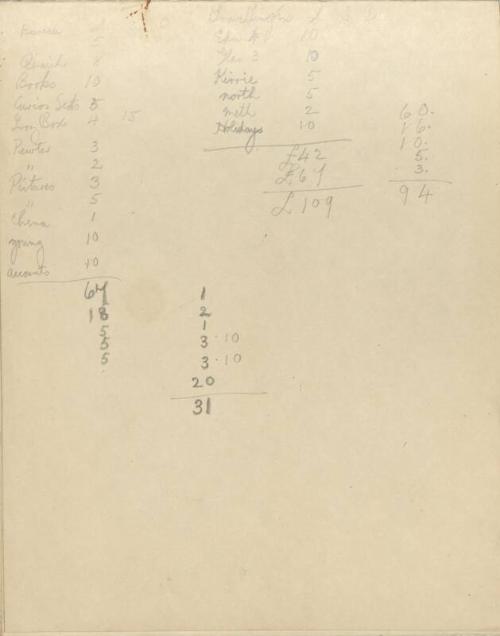 £
5
8
Books 10
Curios Sets 5
4 15
Pewter 3
" 2
Pictures 3
" 5
China 1
young 10
accounts 10
67
18
5
5
5
£ S D
10
Geo 3 10
5
north 5
meth 2
Holidays 10
£42
£67
£109
60.
16.
10.
5.
3.
94
1
2
1
3 . 10
3 . 10
20
31